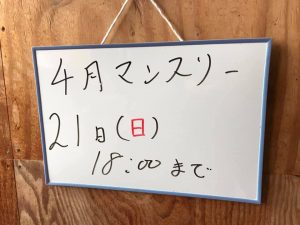 4月マンスリー
21日(日)
18:00まで